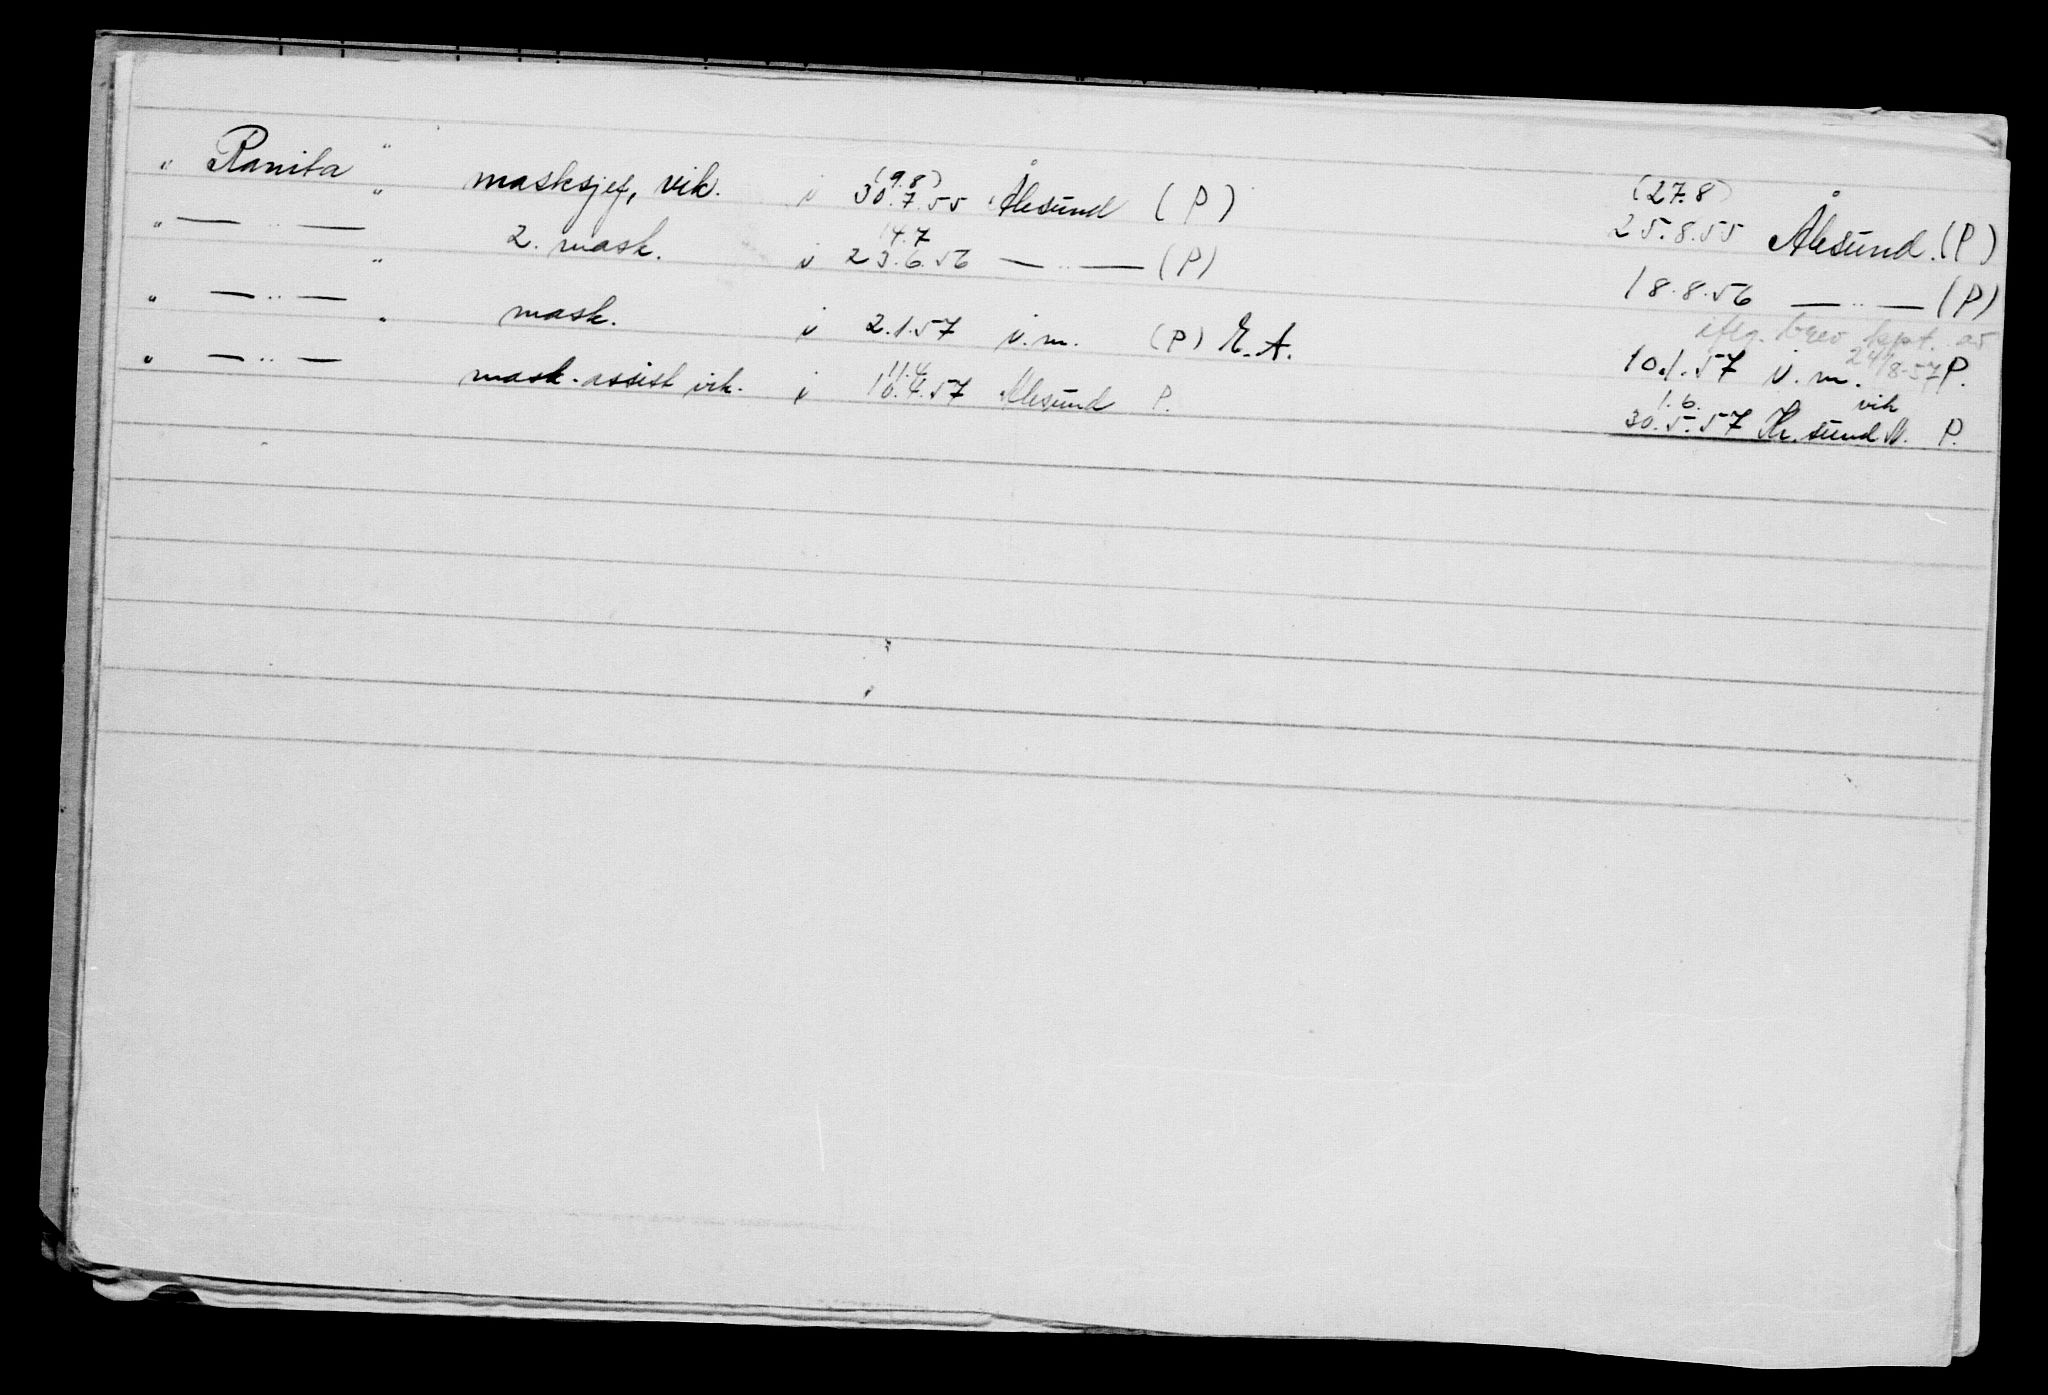 " Ranita " masksjef, vik. i (9.8) 30.7.55 Ålesund (P) (27.8) 25.8.55 Ålesund. (P)
" — " — " 2. mask. i 14.7 23.6.56 — " — (P) 18.8.56 — " — (P)
" — " — " mask. i 2.1.57 i.m. (P) E.A. iflg. brev kpt. av 24/8-57 10.1.57 i.m. P.
" — " — mask.assist vik. i 11.4 10.4.57 Ålesund P. 1.6. 30.5.57 Kr.sund N. vik P.